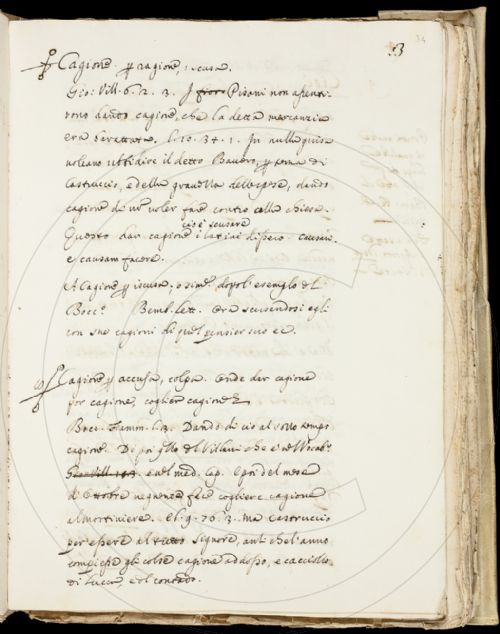 3
Cagione. p ragione, scusa.
Gio: Vill. 6. 2. 3. I fiori Pisani non assenti-
rono dando cagione, che la detta mercanzia
era barattata. l. 10. 34. 1. In nulla guisa
voleano ubbidire il detto Bavero, p tema di
Castruccio, e della gravezza delle spese, dando
cagione di non voler fare contro alla chiesa.
cioè scusare
Questo dar cagione i latini dissero causari,
e causam facere.
A Cagione p iscusa; dopo l'esemplo del
Bocc. Bemb. lett. Ora scusandosi egli
con sue cagioni di quel pensier suo ec.
Cagione p accusa, colpa. Onde dar cagione
por cagione, coglier cagione
Bocc. Fiamm. l. 3. Dando di ciò al rotto tempo
cagione. Di più del Villani che è nel Vocab.
Gio: Vill. e nel med. cap. E poi del mese
d'Ottobre fece cogliere cagione
al mortiniere. l. 9. 76. 3. Ma Castruccio
per essere al tutto Signore, anzi che l'anno
compiesse gli colse cagione addosso, e cacciollo
di Lucca, e del contado.